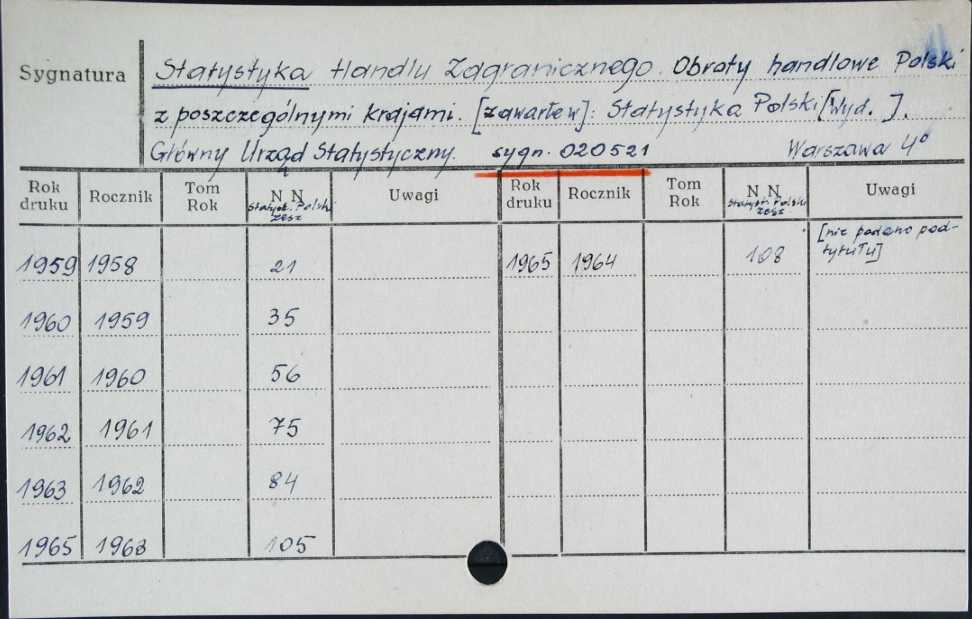 Sygnatura Statystyka Handlu Zagranicznego. Obroty handlowe Polski
z poszczególnymi krajami. [zawarte w]: Statystyka Polski [wyd. ].
Główny Urząd Statystyczny. sygn. 020521 Warszawa 4°
Rok druku Rocznik Tom Rok N N Statyst. Polski zesz Uwagi Rok druku Rocznik Tom Rok N N Statyst. Polski zesz Uwagi
1959 1958 21 1965 1964 108 [nie podano podtytułu]
1960 1959 35
1961 1960 56
1962 1961 75
1963 1962 84
1965 1963 105